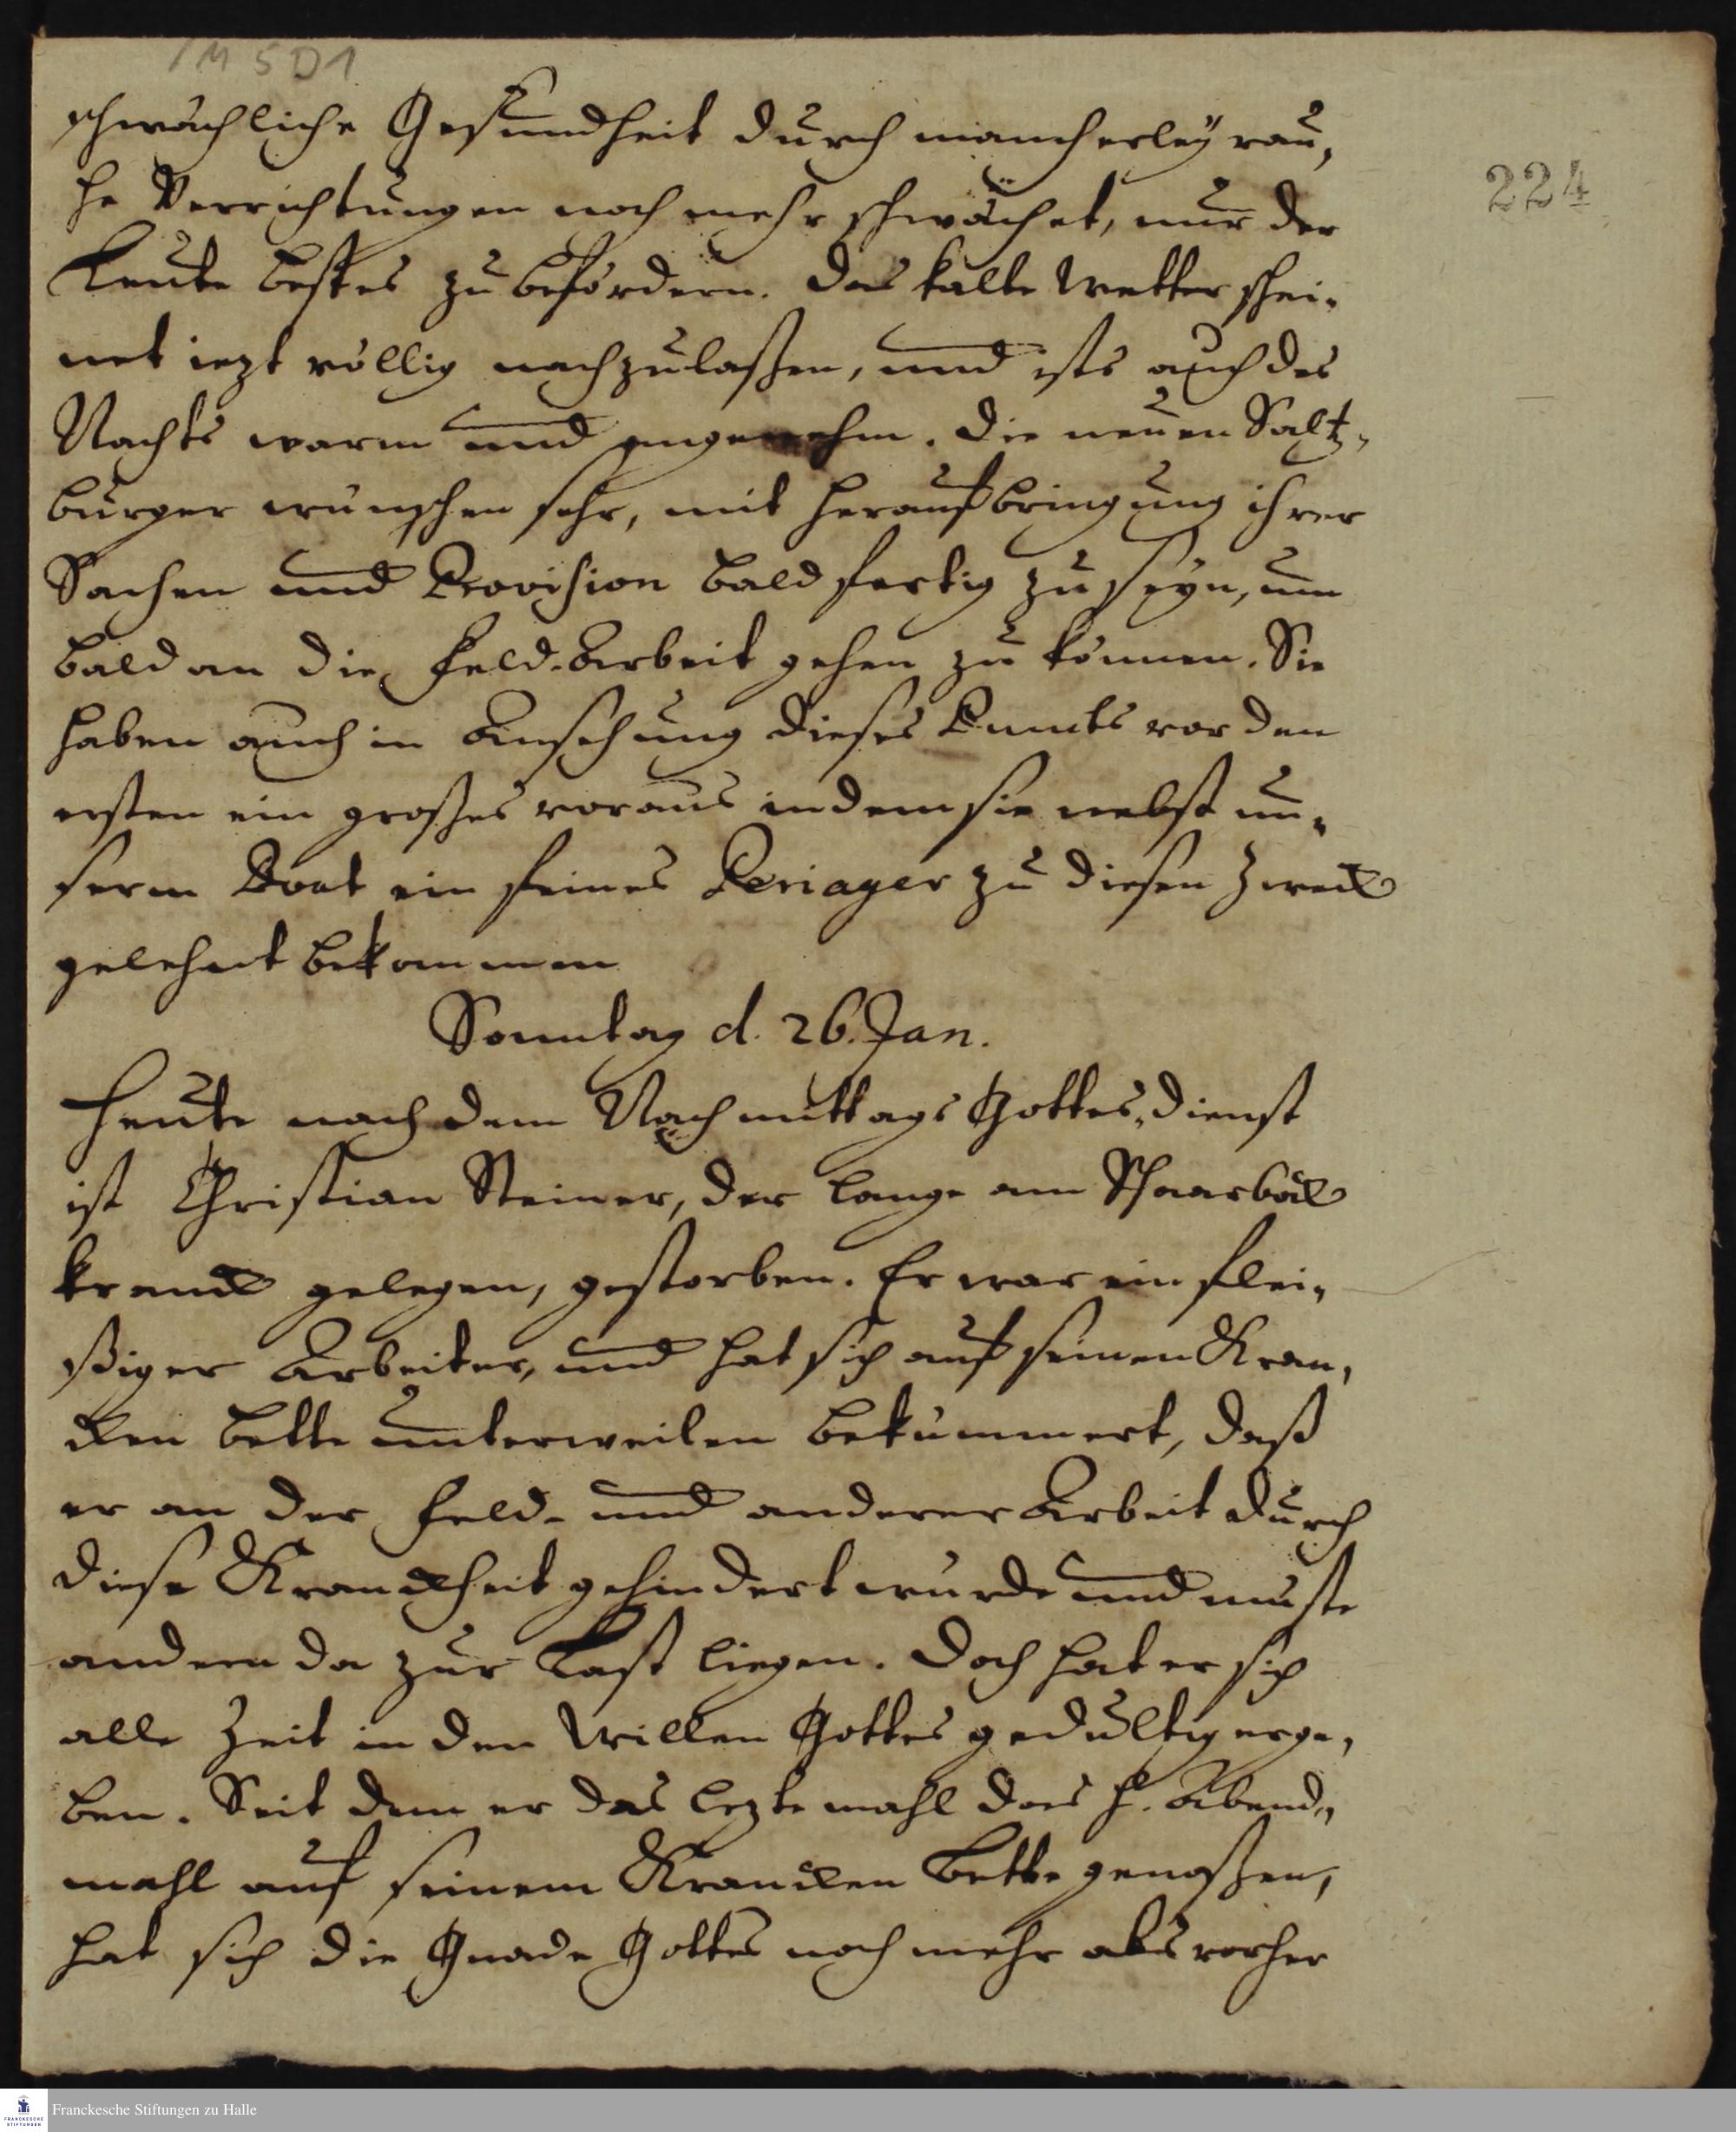 M 5 D 1
224
schwächliche Gesundheit durch mancherley rau,
he Verrichtungen noch mehr schwächet, nur der
Leute bestes zu befördern. Das kalte Wetter schei-
net iezt völlig nachzulaßen, und ists auch des
Nachts warm und angenehm. Die neuen Saltz,
burger wünschen sehr, mit heraufbringung ihrer
Sachen und Provision bald fertig zu seyn, um
bald an die Feld-Arbeit gehen zu können. Sie
haben auch in Ansehung dieses Puncts vor den
ersten ein großes voraus indem sie nebst un-
serm Boot ein feines Periager zu diesen Zweck
gelehnt bekommen
Sonntag d. 26. Jan.
Heute nach dem Nachmittags Gottes-dienst
ist Christian Steiner, der lange am Schaarbock
kranck gelegen, gestorben. Er war ein flei-
ßiger Arbeiter, und hat sich auf seinen Kran,
cken bette unterweilen bekümmert, daß
er an der Feld- und anderer Arbeit durch
diese Kranckheit gehindert wurde und muste
andern da zur Last liegen. Doch hat er sich
alle Zeit in den Willen Gottes gedultig erge,
ben. Seit dem er das lezte mahl das H. Abend-
mahl auf seinem Krancken Bette genoßen,
hat sich die Gnade Gottes noch mehr als vorher
Franckesche Stiftungen zu Halle
FRANCKESCHE
STIFTUNGEN